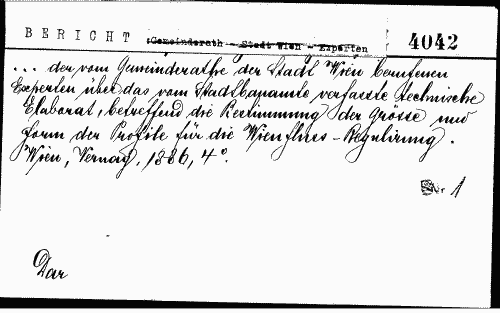 BERICHT :Gemeinderath - Stadt Wien - Experten 4042
... der vom Gemeinderathe der Stadt Wien berufenen
Experten über das vom Stadtbauamte verfasste technische
Elaborat, betreffend die Bestimmung der Grösse und
Form der Profile für die Wienfluss-Regulirung.
Wien, Vernay, 1886, 4°.
1
Dar